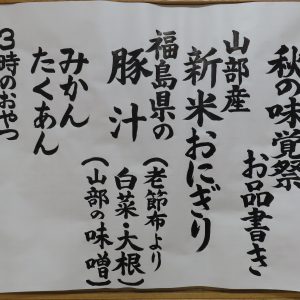 秋の味覚祭
お品書き
山部産
新米おにぎり
福島県の
豚汁
(老節布より
白菜・大根)
(山部の味噌)
みかん
たくあん
3時のおやつ